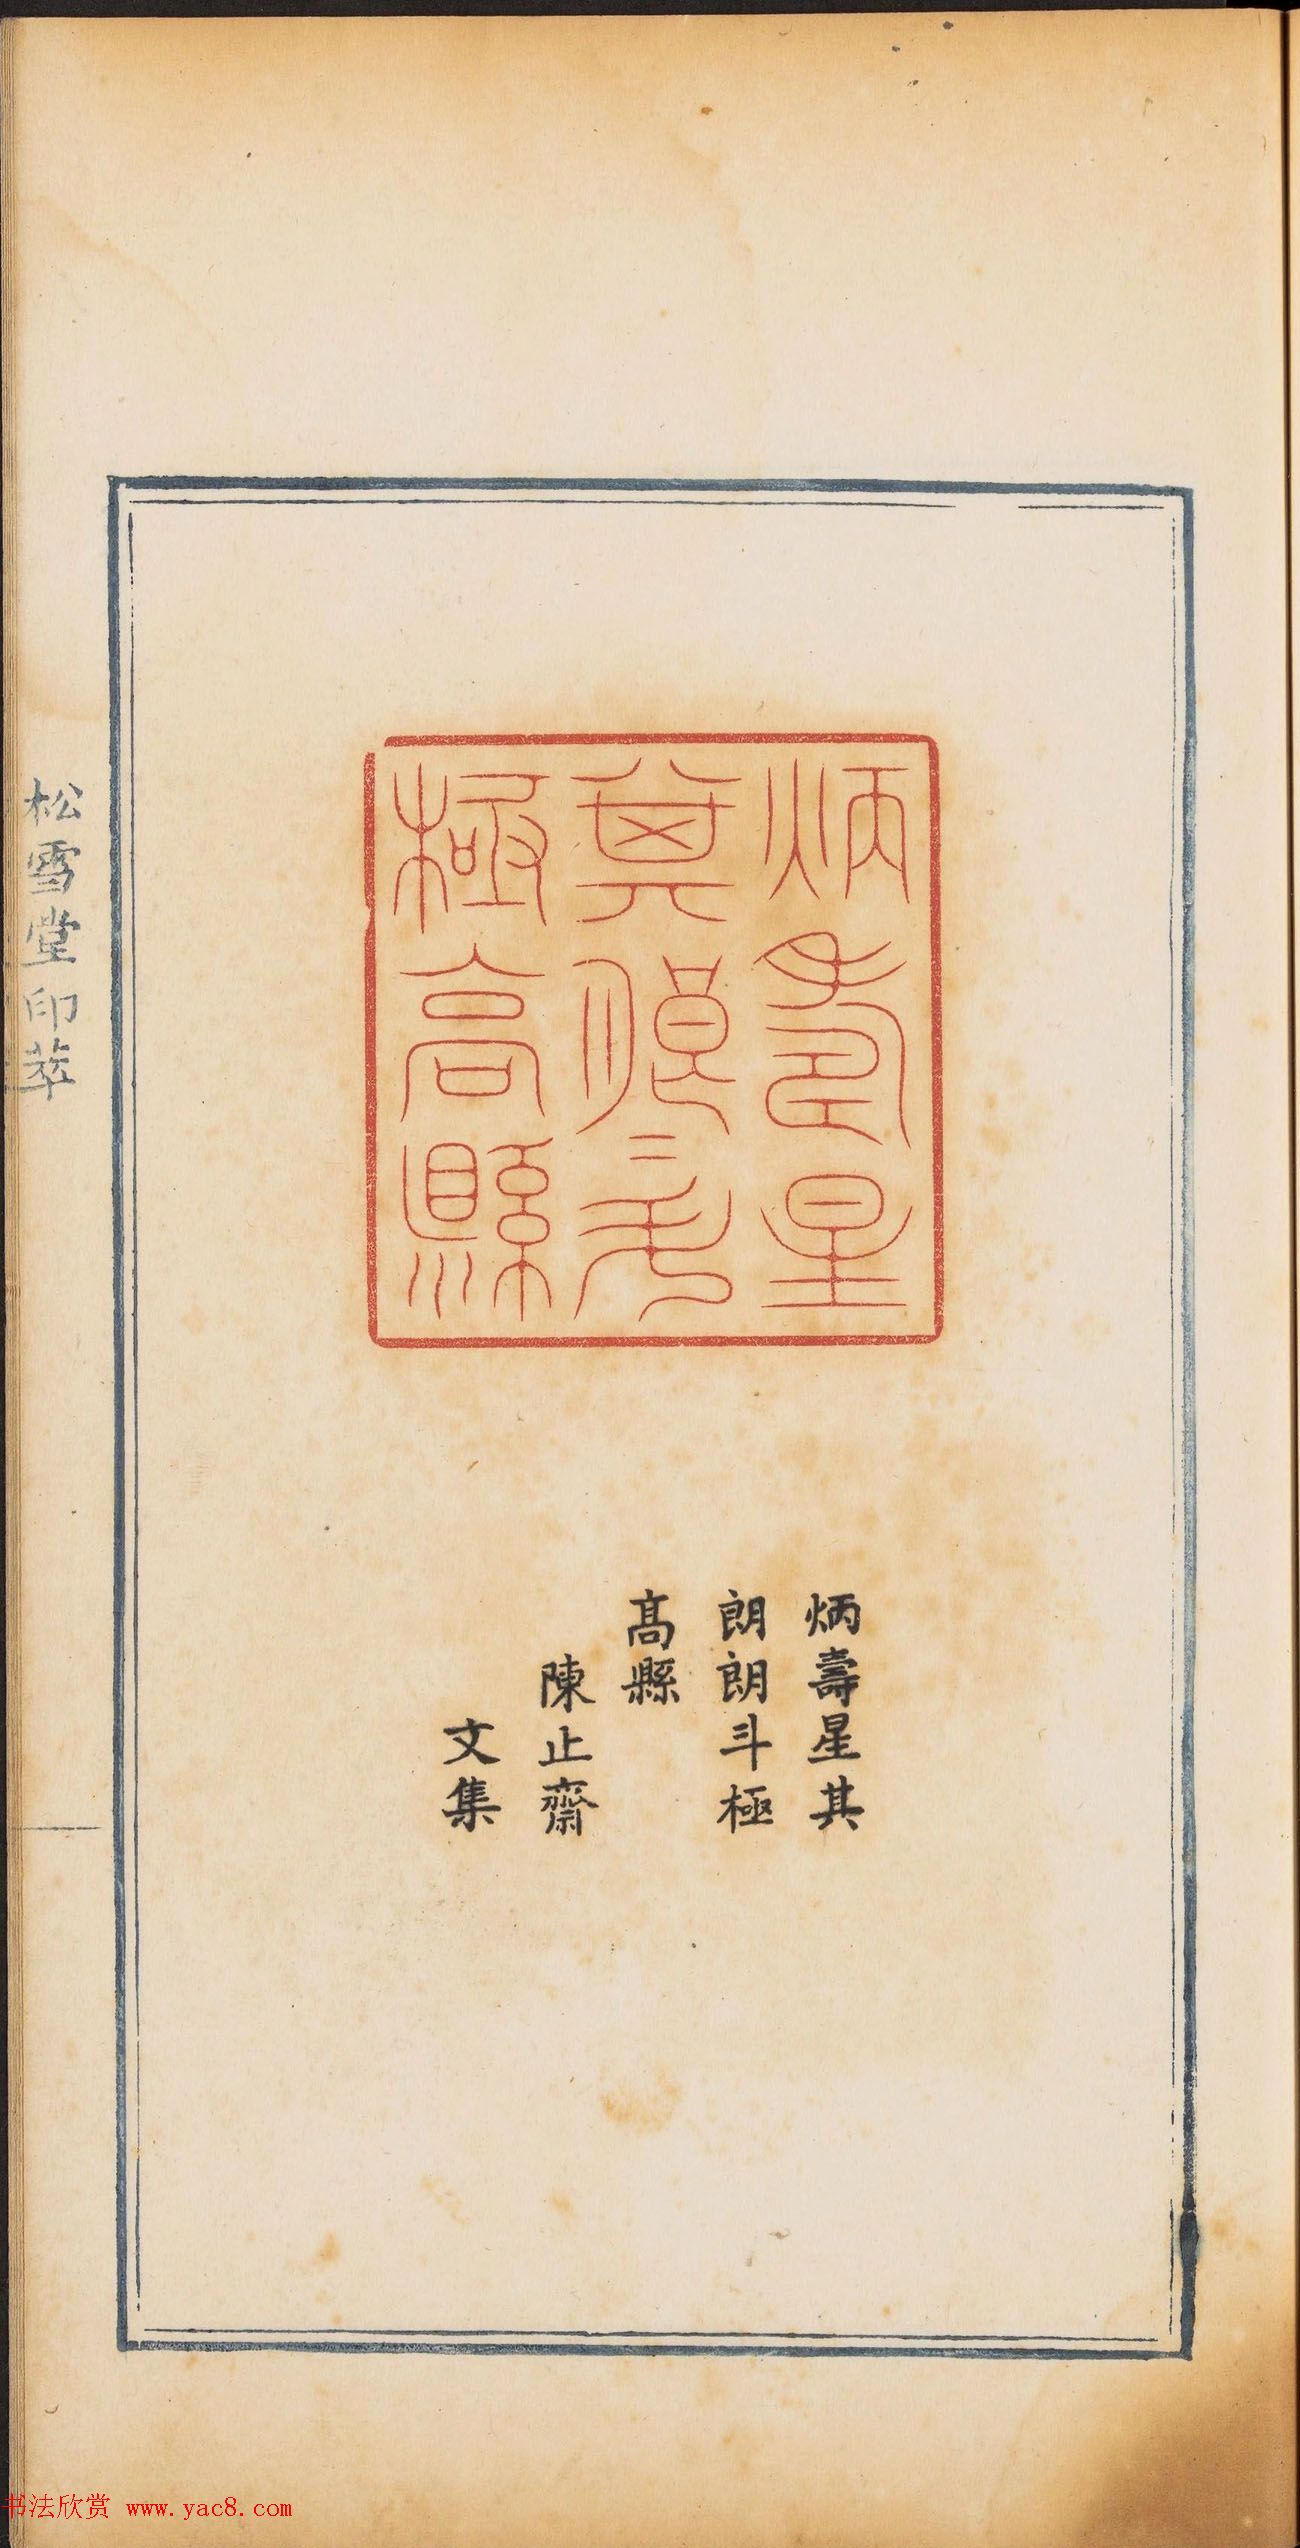 炳壽星
其朗=
斗極高縣
炳壽星其
朗朗斗極
高縣
陳止齋
文集
松雪堂印萃
书法欣赏 www.yac8.com